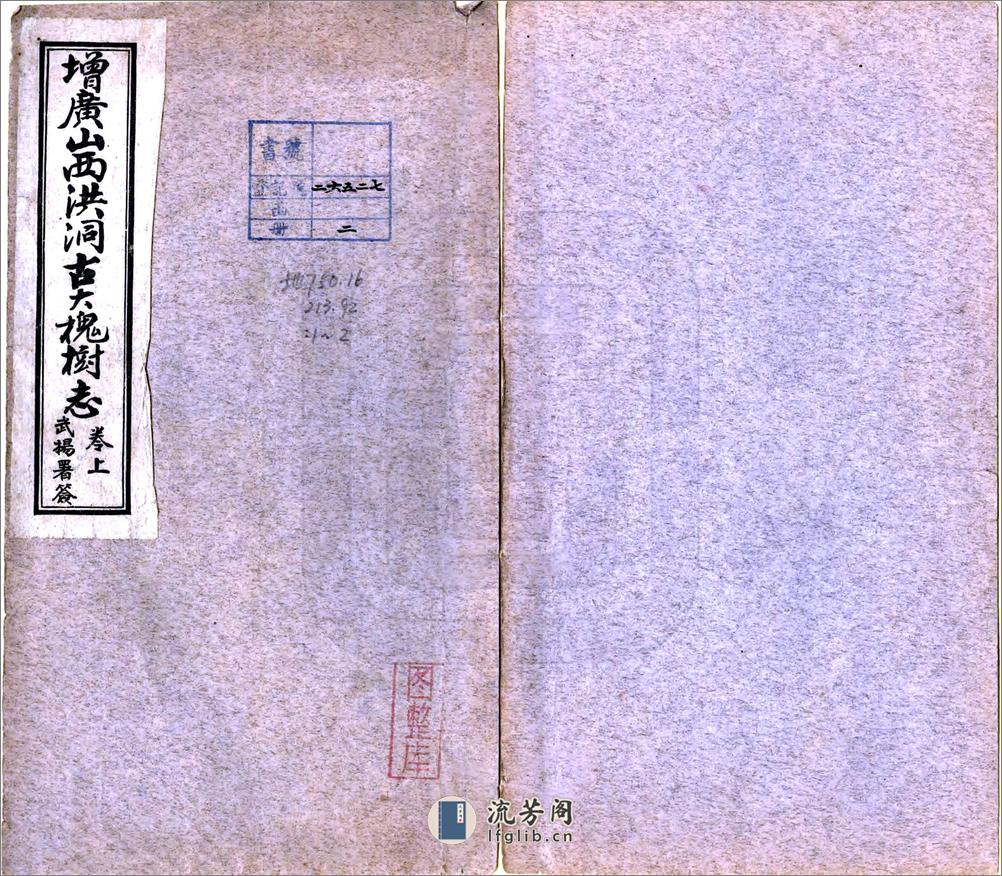 增廣山西洪洞古大槐樹志
卷上
武揚署簽
書號
登記號 二六五二七
函
冊 二
地750.16
213.92
:1~2
图整库
流芳阁
lfglib.cn